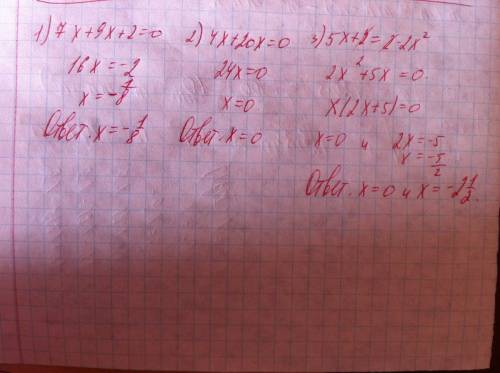 1) 7x+9x+2=0
16x=-2
x=-1/8
Ответ. x=-1/8
2) 4x+20x=0
24x=0
x=0
Ответ. x=0
3) 5x+2=2-2x²
2x²+5x=0
x(2x+5)=0
x=0 и 2x=-5
x=-5/2
Ответ. x=0 и x=-2 1/2